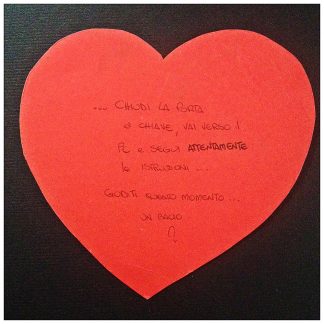 ... CHIUDI LA PORTA
A CHIAVE, VAI VERSO IL
PC E SEGUI ATTENTAMENTE
le ISTRUZIONI ...
GODITI QUESTO MOMENTO ...
UN BACIO